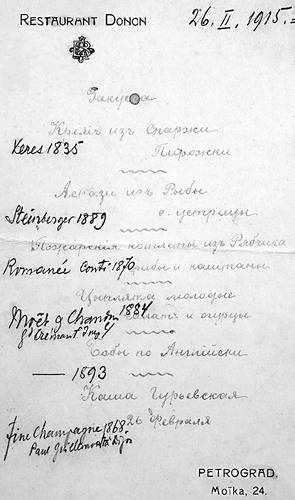 RESTAURANT DONON
26. II. 1915.=
Закуска
Кремъ изъ Спаржи
Xeres 1835
Пирожки
изъ Рыбы
Steinberger 1889
Пожарския котлеты изъ Рябчика
Romanée Conti 1870 грибы и каштаны
Цыплята молодые
Moët & Chandon 1884
Салатъ и огурцы
Gd Crémant Imp
Бобы по Английски
— 1893
Каша Гурьевская
Fine Champagne 1868
26 Февраля
Paul
PETROGRAD.
Моїка, 24.